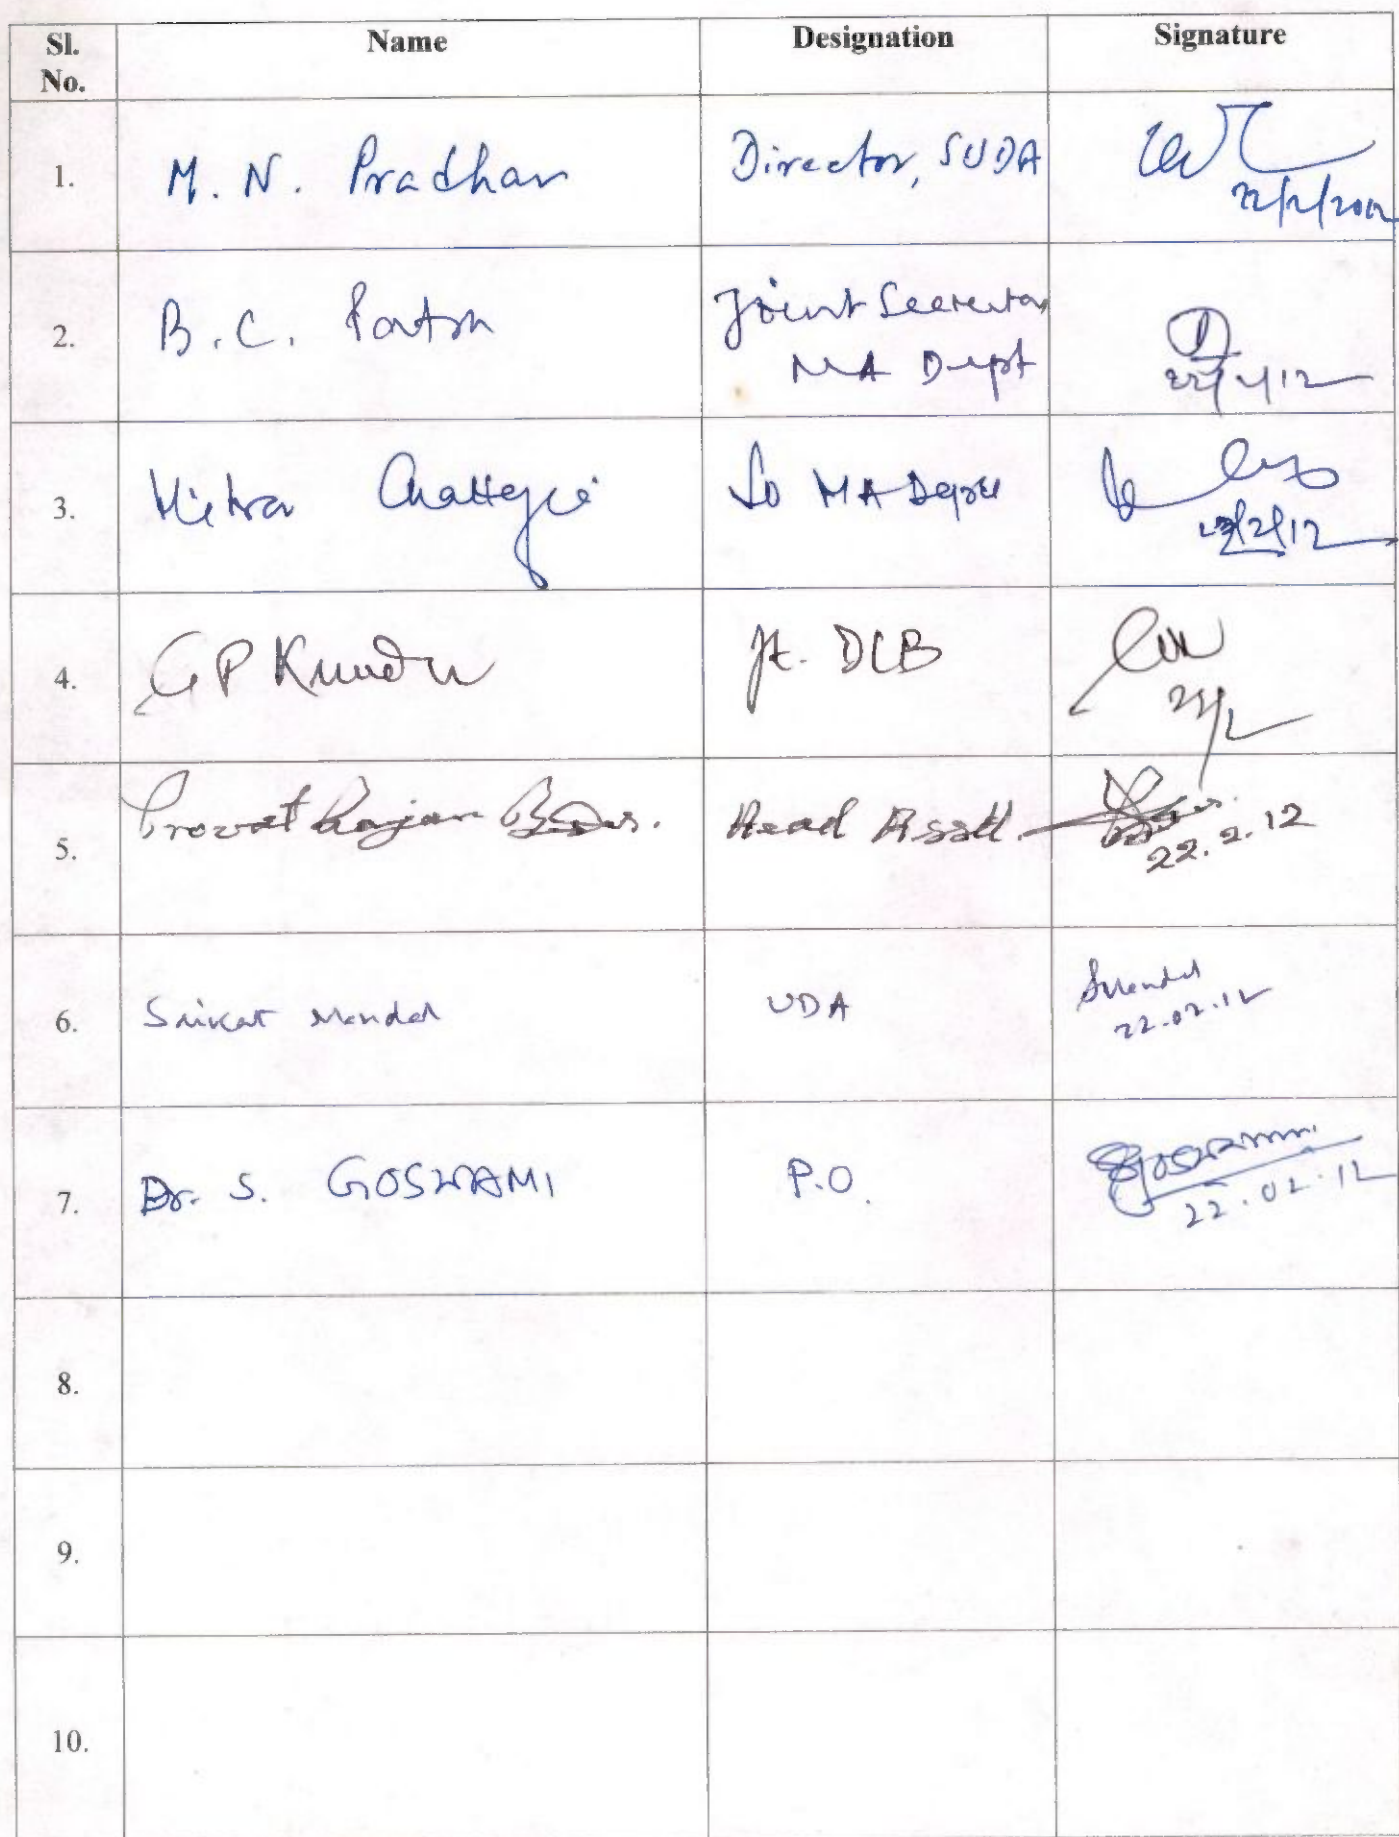 Sl. No. Name Designation Signature
1. M. N. Pradhan Director, SUDA 22/2/2012
2. B. C. Patra Joint Secretary
MA Dept 22/2/12
3. Mitra Chatterjee SO MA Deptt 22/2/12
4. G P Kundu Jt. DLB 22/2
5. Provat Ranjan Head Asstt. 22.2.12
6. Saikat Mandal UDA SMandal
22.02.12
7. Dr. S. GOSWAMI P.O. SGoswami
22.02.12
8.
9.
10.